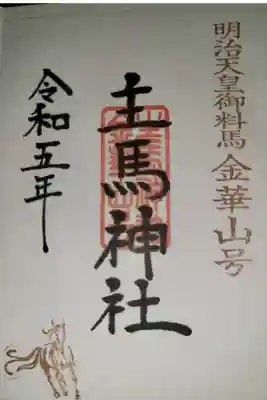 明治天皇御料馬 金華山号
主馬神社
令和五年